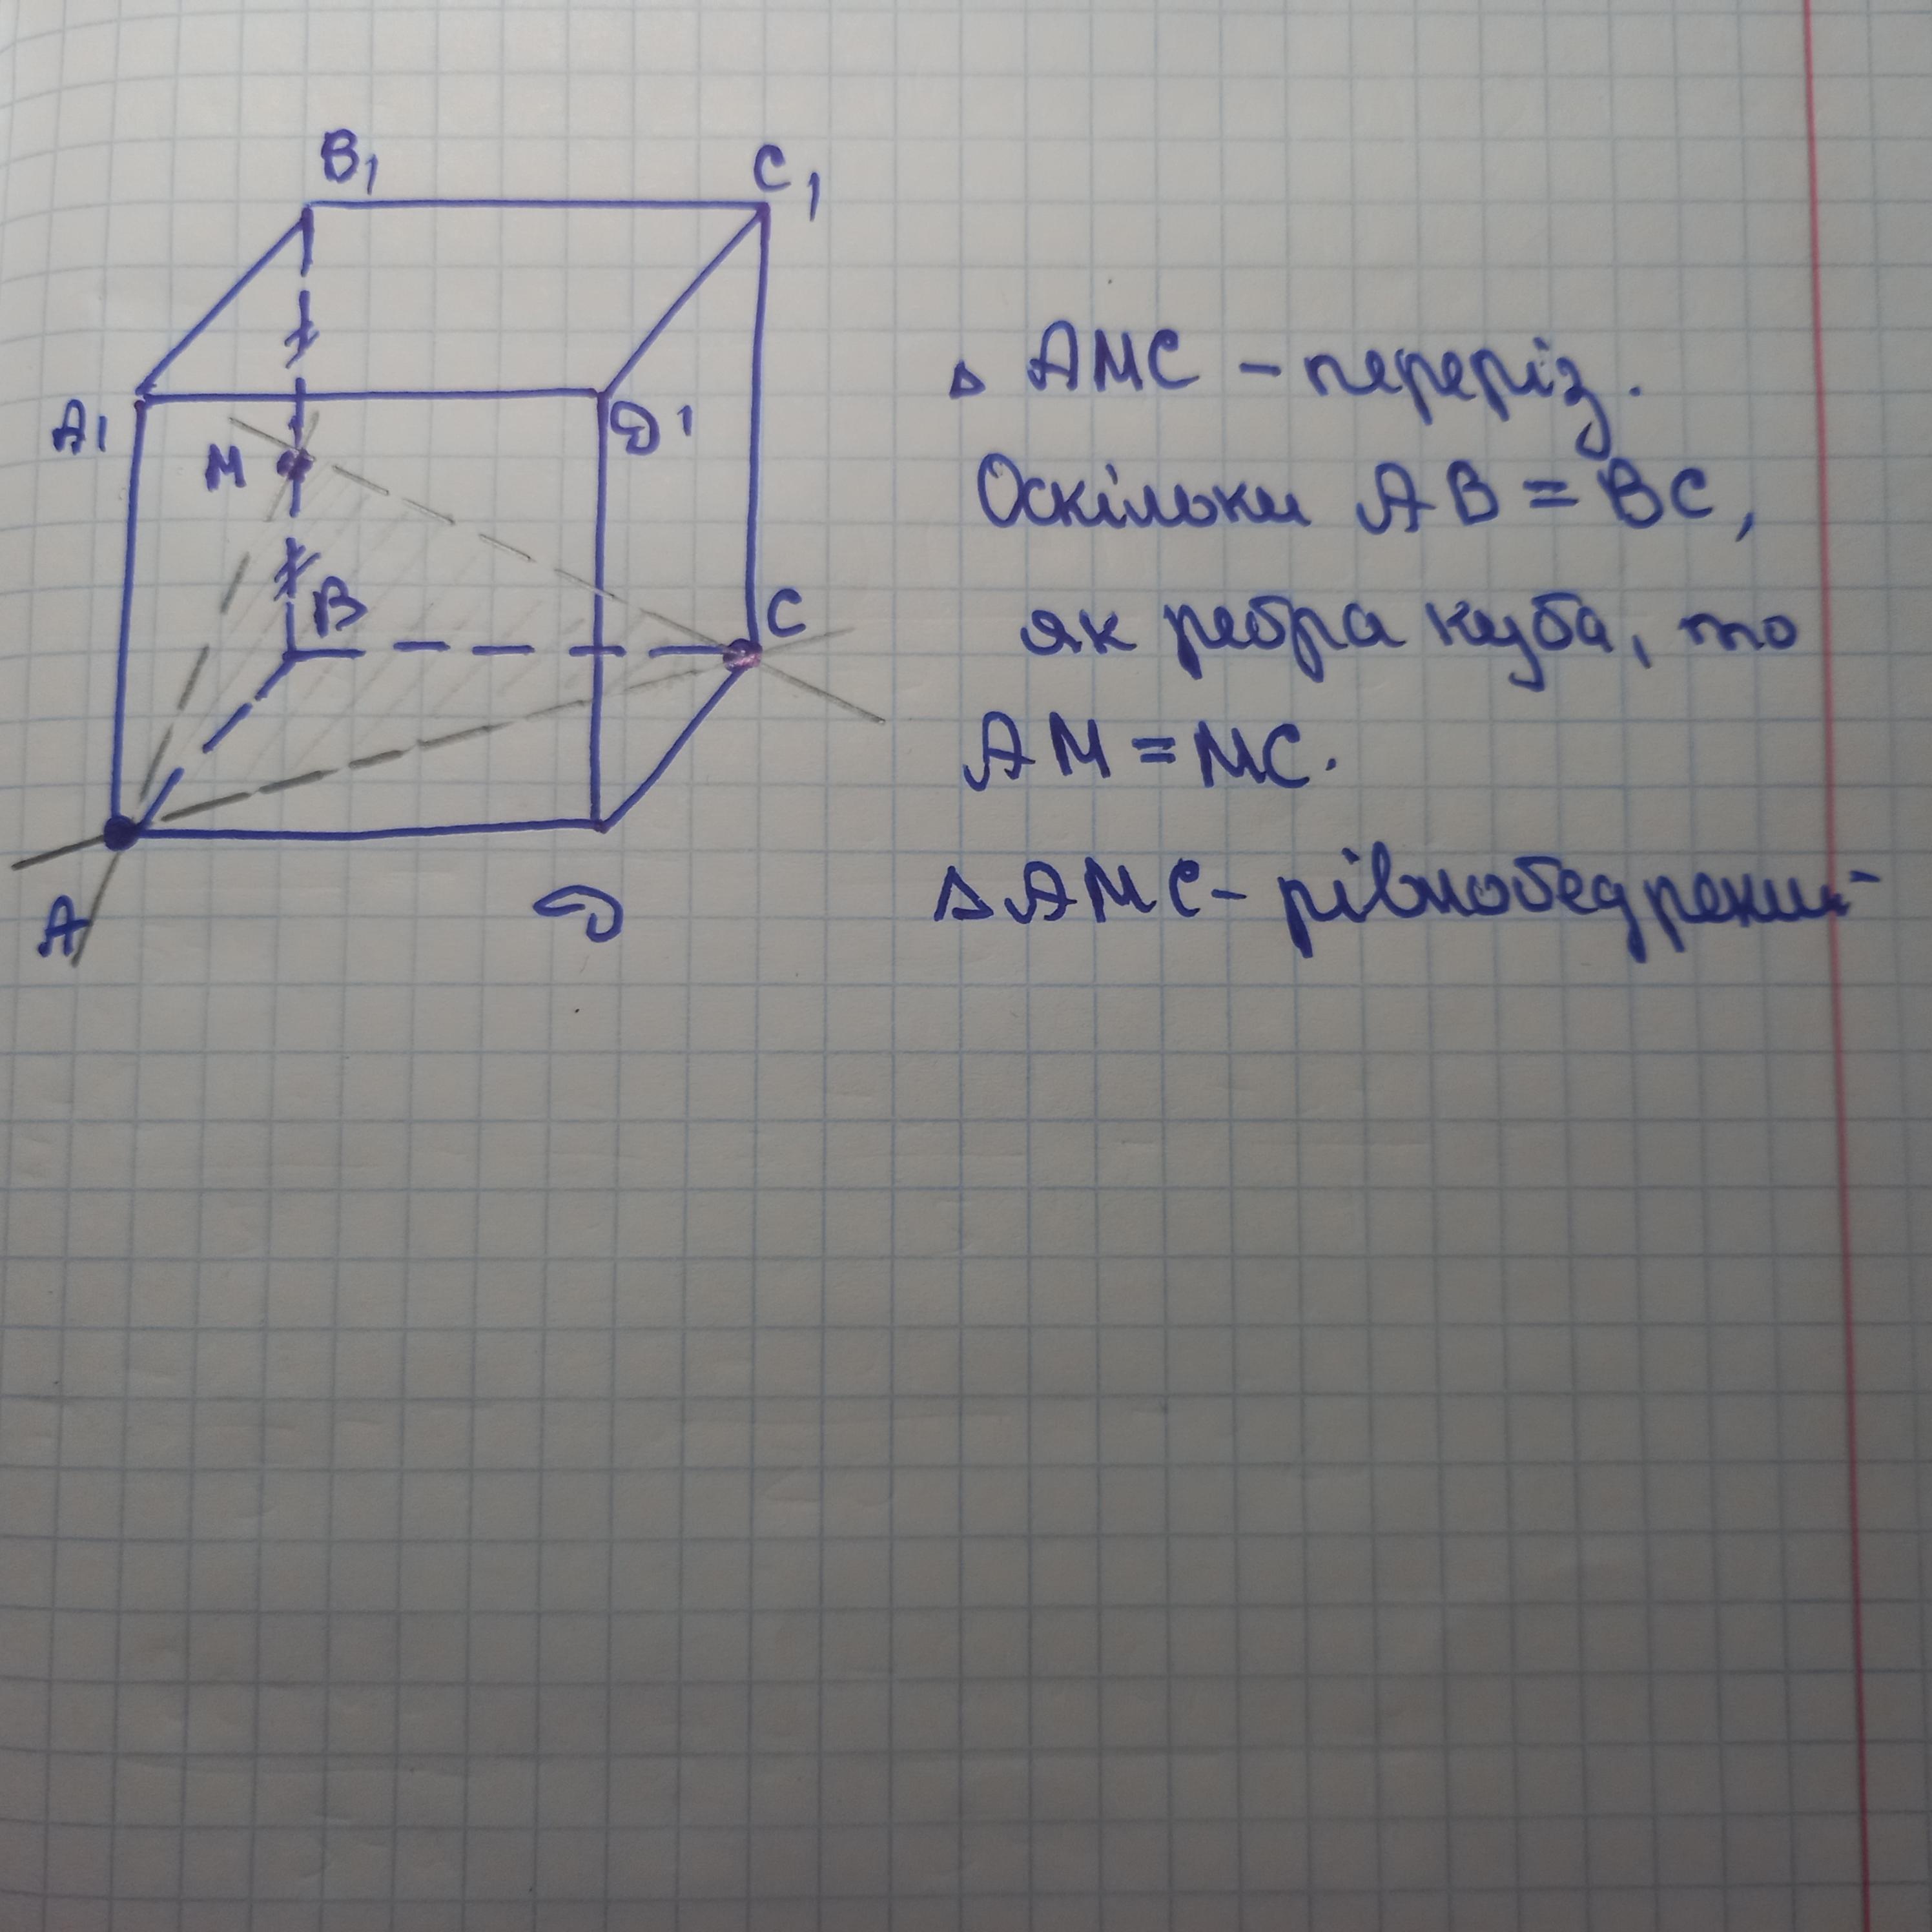 B₁
C₁
A₁
D₁
M
B
C
A
D
△ AMC – переріз.
Оскільки AB = BC,
як ребра куба, то
AM = MC.
△ AMC – рівнобедрений